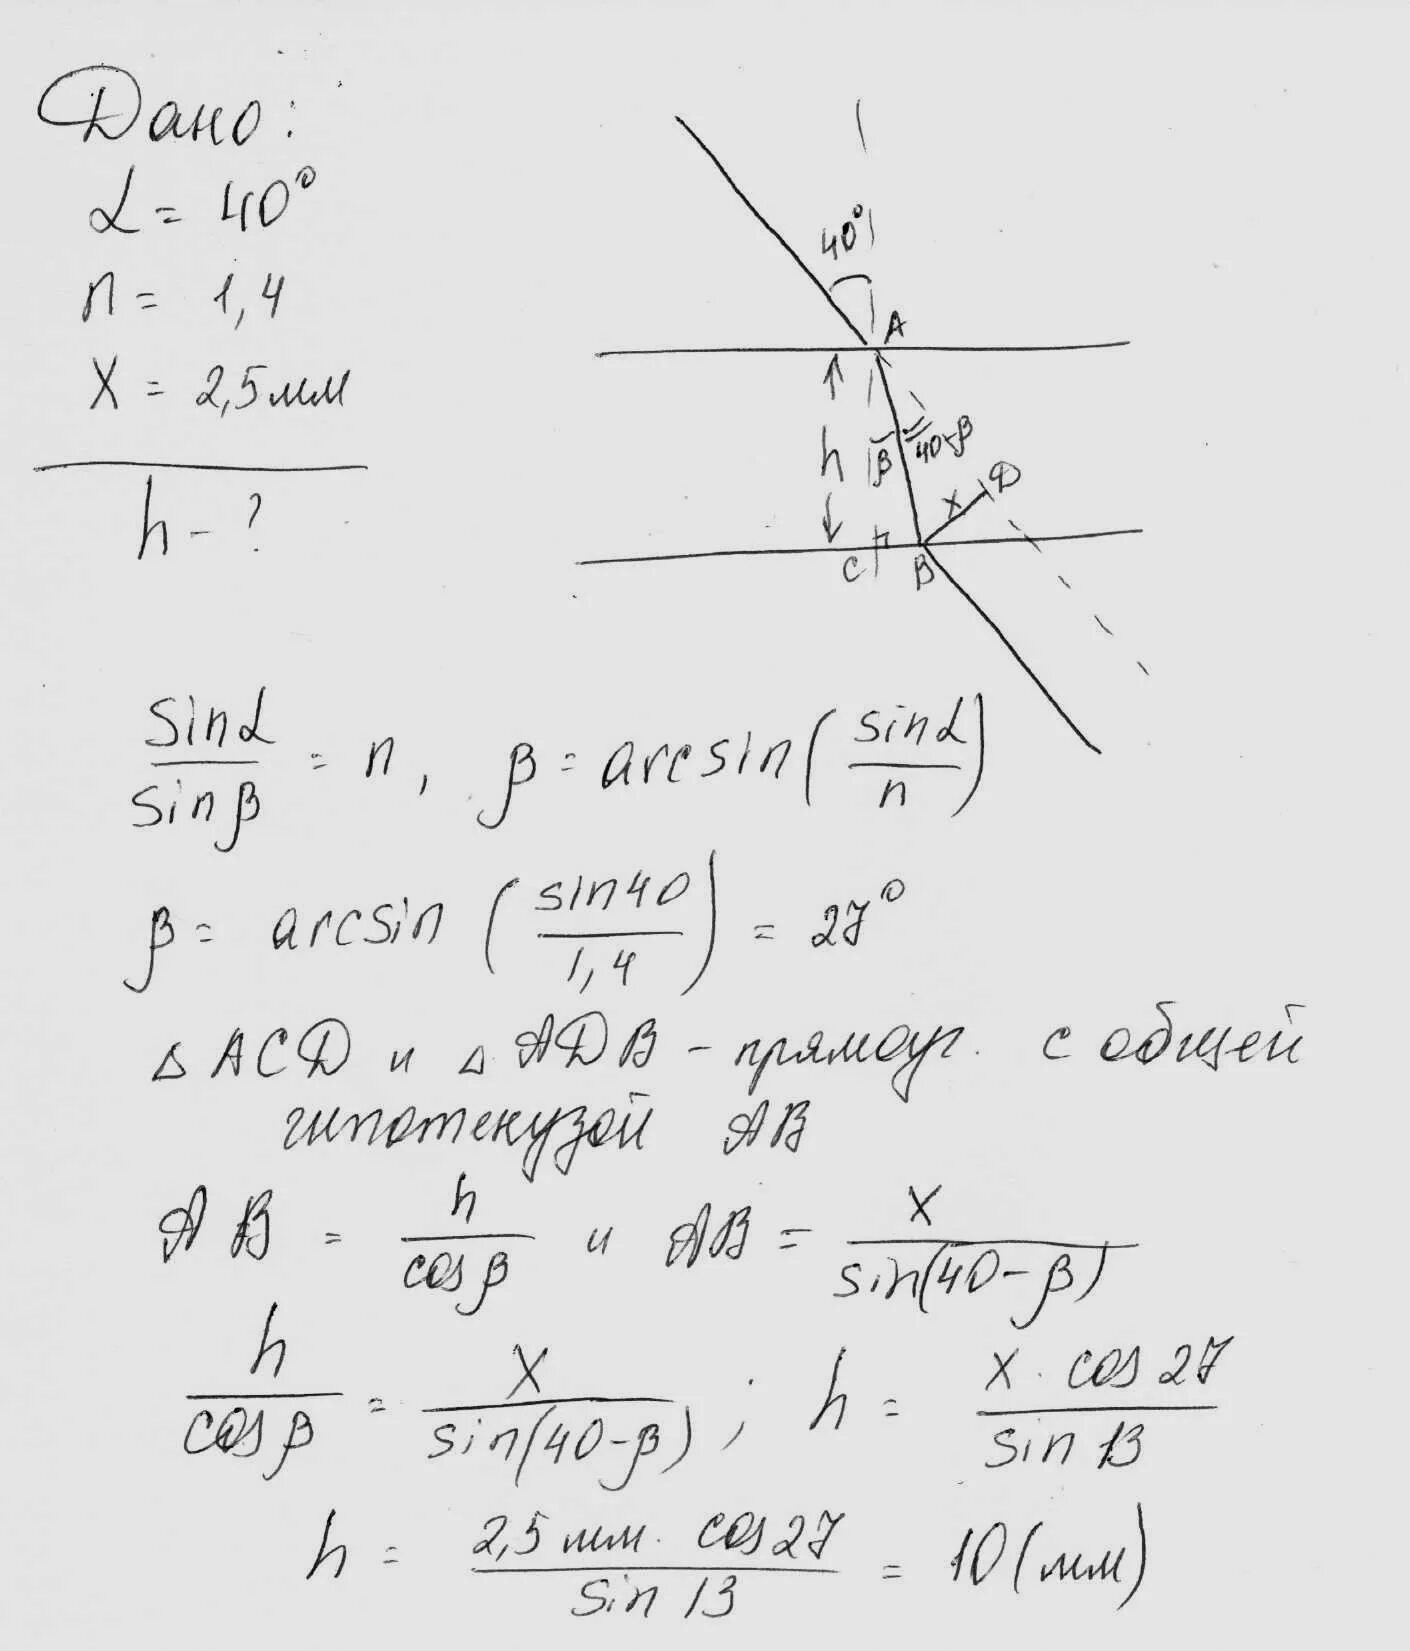 Дано:
α = 40°
n = 1,4
X = 2,5мм
h - ?
40°
A
h
β
40-β
X
D
C
B
sinα/sinβ = n, β = arcsin(sinα/n)
β = arcsin (sin40/1,4) = 27°
△ ACD и △ ADB - прямоуг. с общей
гипотенузой AB
AB = h/cosβ и AB = X/sin(40-β)
h/cosβ = X/sin(40-β) ; h = X · cos 27/sin 13
h = 2,5 мм · cos27/sin 13 = 10 (мм)